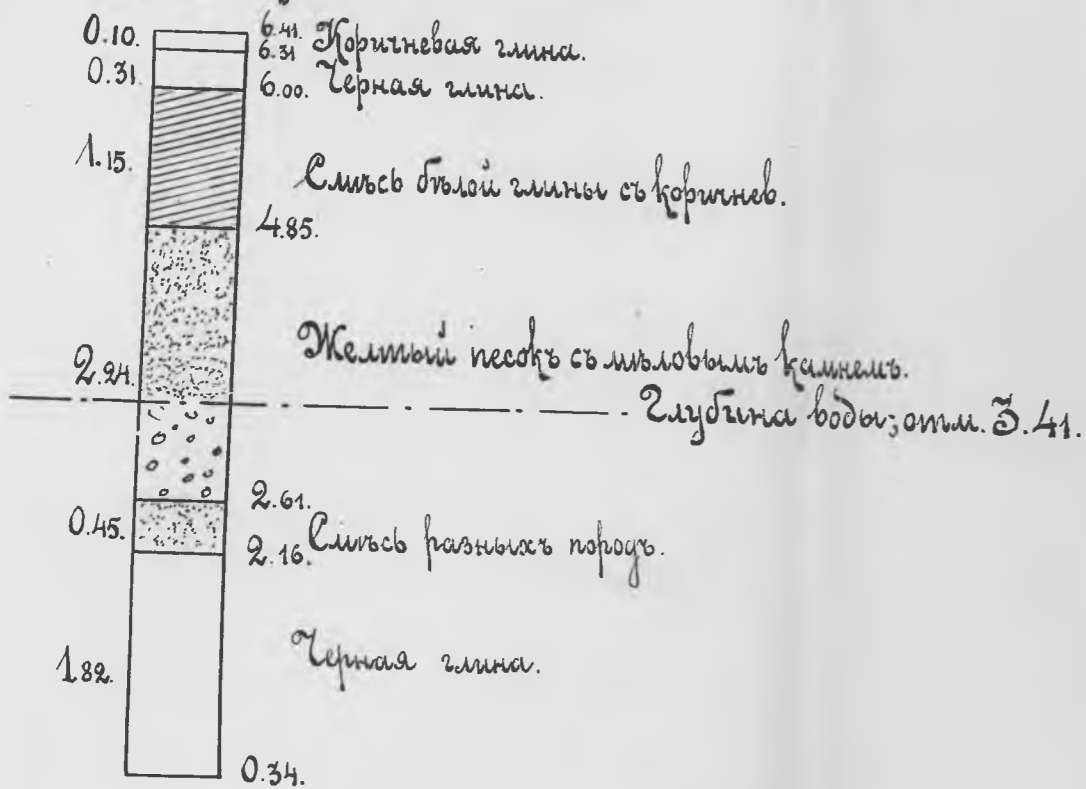 0.10. 6.41. Коричневая глина.
6.31
0.31. Черная глина.
6.00.
1.15. Смѣсь бѣлой глины съ коричнев.
4.85.
Желтый песокъ съ мѣловымъ камнемъ.
2.24.
Глубина воды; отм. 3.41.
2.61.
0.45. Смѣсь разныхъ породъ.
2.16.
Черная глина.
1.82.
0.34.